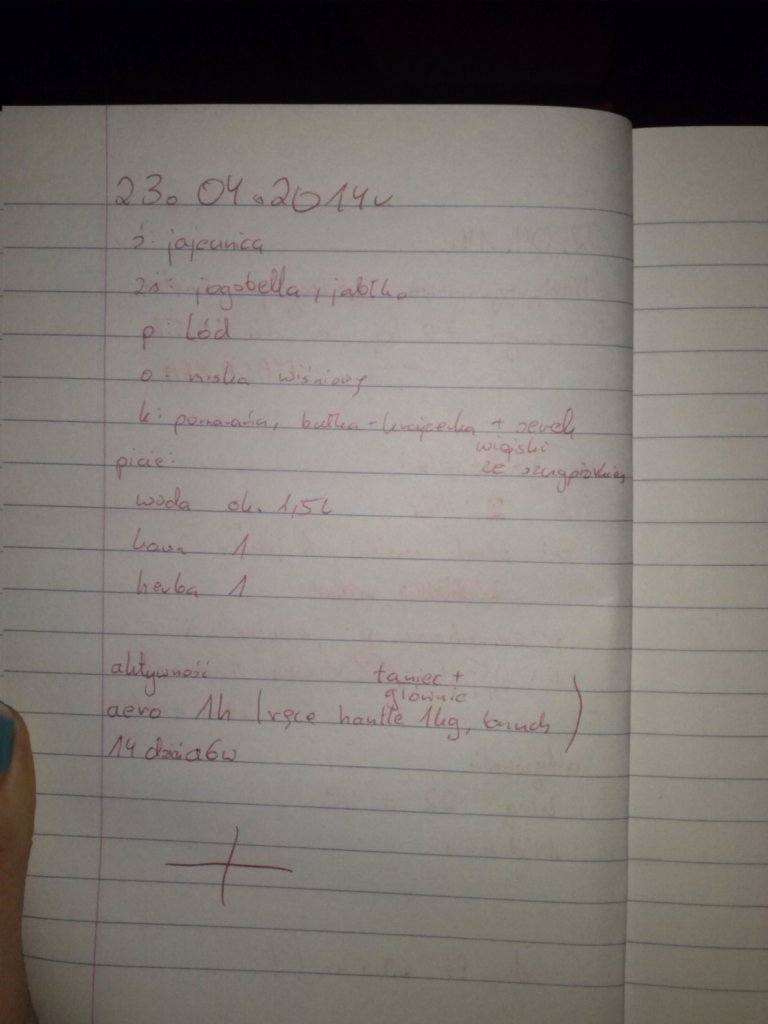 23. 04. 2014r
ś: jajecznica
2ś: jogobella, jabłko
p: lód
o: miska wiśniowy
k: pomarańcz, bułka - kajzerka + serek
wiejski
ze szczypiorkiem
picie:
woda ok. 1,5l
kawa 1
herba 1
aktywność
taniec +
głównie
aero 1h (ręce hantle 1kg, brzuch)
14 dzia6w